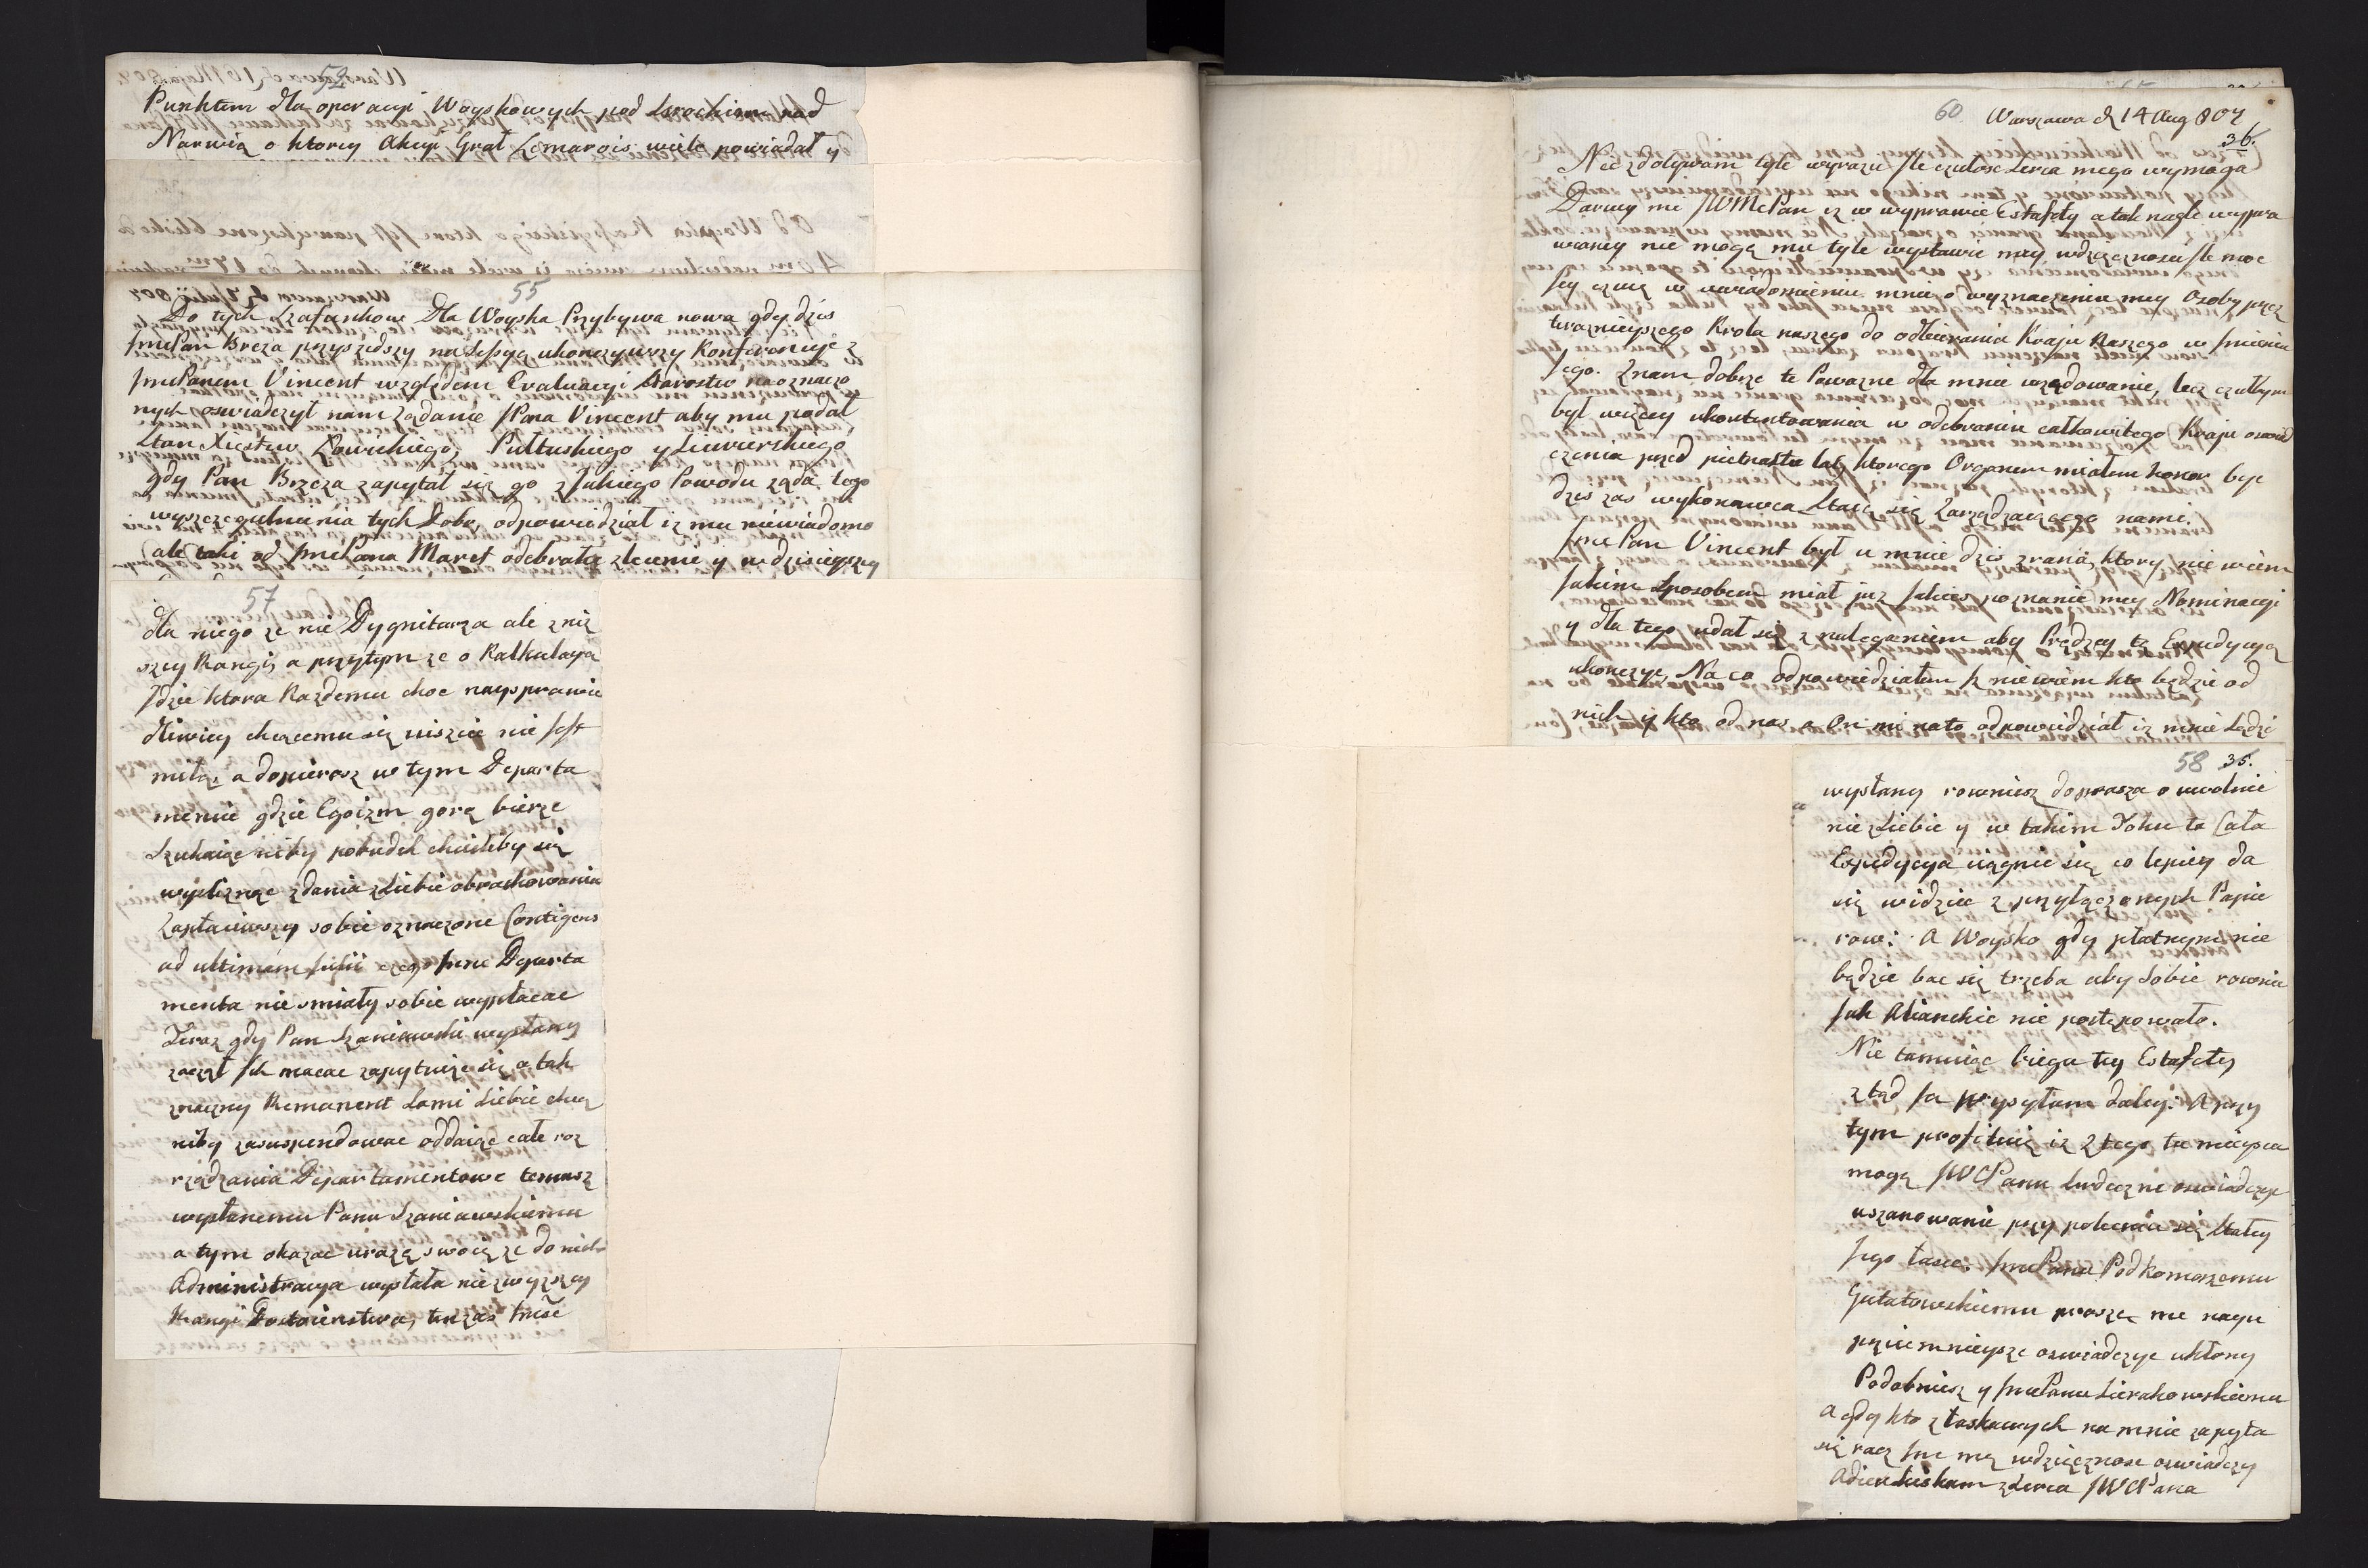 52
Punktem dla operacyi Woyskowych pod Serochiem nad
Narwią o ktorey Akcyi Grał Lemarois wiele powiadał y
55
Do tych Szafunkow Dla Woyska Przybywa nowa gdy dzis
JmcPan Breza przyszedszy na Sessyą ukonczywszy Konferencyę z
JmcPanem Vincent względem Evaluacyi Starostw naoznaczo
nych oswiadczył nam żądanie JPana Vincent aby mu podał
Stan Xięstw Łowickiego, Pułtuskiego y Siewierskiego
gdy Pan Brzeza zapytał się go z Jakiego Powodu ząda tego
wyszczegulnienia tych Dobr, odpowiedział iz mu niewiadomo
ale taki od JmcPana Maret odebrał zlecenie y w dzisieyszey
57
dla niego ze nie Dygnitarza ale zniż
szey Rangi, a przytym ze o Kalkulacyą
Jdzie ktora Kazdemu choc naysprawie
dliwiey chcącemu się uiszcic nie Jest
miłą, a dopierosz w tym Departa
mencie gdzie Egoizm gorą bierze
Szukaiąc niby pobudek chcieliby się
wysliznąc zdania z Siebie obrachowania
Zapłaciwszy sobie oznaczone Contigens
ad ultimam Julii czego Jnne Departa
menta nie smiały sobie wypłacac
Teraz gdy Pan Szaniawski wysłany
zaczął Jch macac zapytuiąc się o tak
znaczny Remanent Sami Siebie chcą
niby zasuspendowac oddaiąc całe roz
rządzania Departamentowe temusz
wysłanemu Panu Szaniawskiemu
a tym okazac urazę swoię ze do nich
Administracya wysłała nie zwyzszey
Rangi Dostoienstwa, tuzas
60 Warszawa d 14 Aug 807
36.
Nie zdolywam tyle wyrazu Jle czułosc Serca mego wymaga
Daruy mi JWMcPan iz w wyprawie Estafety a tak nagle wypra
wioney nie mogę mu tyle wystawic mey wdzięcznosci Jle moc
Jey czuię w uwiadomieniu mnie o wyznaczeniu mey Osoby przez
terazniejszego Krola naszego do odbierania Kraju Naszego w Jmieniu
Jego. Znam dobrze te Powazne dla mnie urzędowanie, lecz czułbym
był więcey ukontentowania w odebraniu całkowitego Kraju oswiad
czenia przed pietnastu lat ktorego Organem miałem honor byc
dzis zas wykonawca Staię się Zarządzaiącego nami.
JmcPan Vincent był u mnie dzis zrana, ktory nie wiem
Jakim Sposobem miał juz Jakies poznanie mey Nominacyi
y dla tego udał się z naleganiem aby Prędzey tę Expedycyą
ukonczyc, Na co odpowiedziałem Jz niewiem kto będzie od
nich y kto od nas a On mi na to odpowiedział iz mnie Sądzi
58 35.
wysłany rowniesz doprasza o uwolnie
nie z Siebie y w takim Toku ta Cała
Expedycya ciągnie się co lepiey da
się widziec z przyłączonych Papie
row: A Woysko gdy płatnym nie
będzie bac się trzeba aby Sobie rownie
Jak Alianckie nie postępowało.
Nie tamuiąc biegu tey Estafety
ztąd Ja wysyłam daley: A przy
tym profituię iz z tego tu mieysca
mogę JWPanu Serdeczne oswiadczyc
uszanowanie przy poleceniu się Stałey
Jego łasce. JmcPanu Podkomorzemu
Gutakowskiemu proszę me nayu
przeiemnieysze oswiadczyc ukłony
Podobniesz y JmcPanu Sierakowskiemu
A gdy kto z łaskawych na mnie zapyta
się racz Jm mą wdzięcznosc oswiadczy
Adieu Sciskam z Serca JWPana